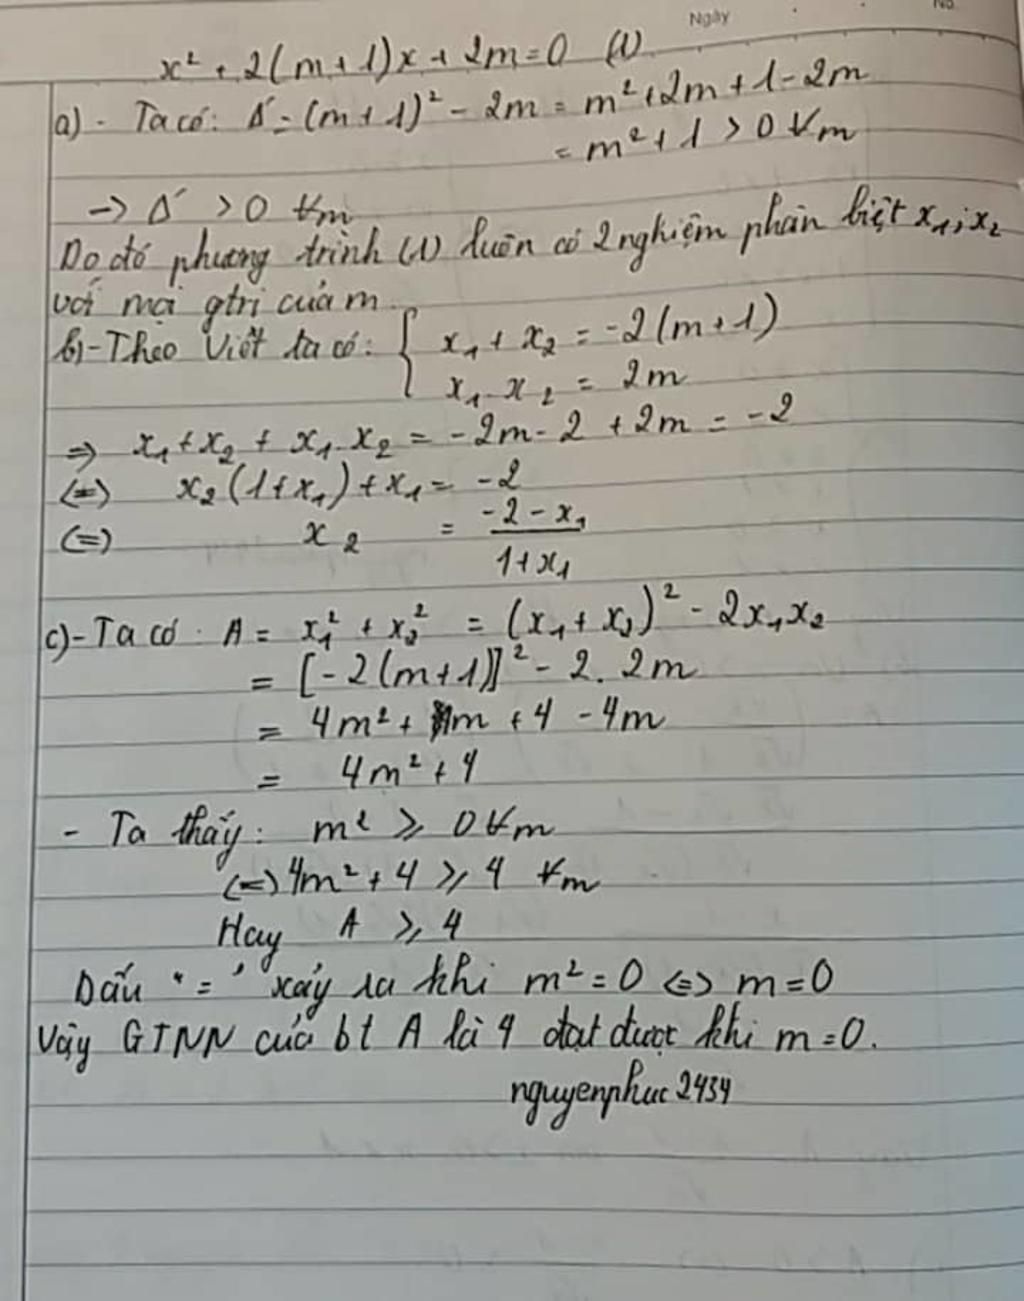 Ngày No.
x² + 2(m+1)x + 2m = 0 (1)
a) - Ta có: Δ' = (m+1)² - 2m = m² + 2m + 1 - 2m
= m² + 1 > 0 ∀m
→ Δ' > 0 ∀m
Do đó phương trình (1) luôn có 2 nghiệm phân biệt x₁; x₂
với mọi gtri của m.
b) - Theo Viét ta có: { x₁ + x₂ = -2(m+1)
x₁. x₂ = 2m
⇒ x₁ + x₂ + x₁. x₂ = -2m - 2 + 2m = -2
(=) x₂(1+x₁) + x₁ = -2
(=) x₂ = (-2 - x₁)/(1 + x₁)
c) - Ta có: A = x₁² + x₂² = (x₁ + x₂)² - 2x₁x₂
= [-2(m+1)]² - 2. 2m
= 4m² + m + 4 - 4m
= 4m² + 4
- Ta thấy: m² ≥ 0 ∀m
(=) 4m² + 4 ≥ 4 ∀m
Hay A ≥ 4
Dấu "=" xảy ra khi m² = 0 ⇔ m = 0
Vậy GTNN của bt A là 4 đạt được khi m = 0.
nguyenphuc2434